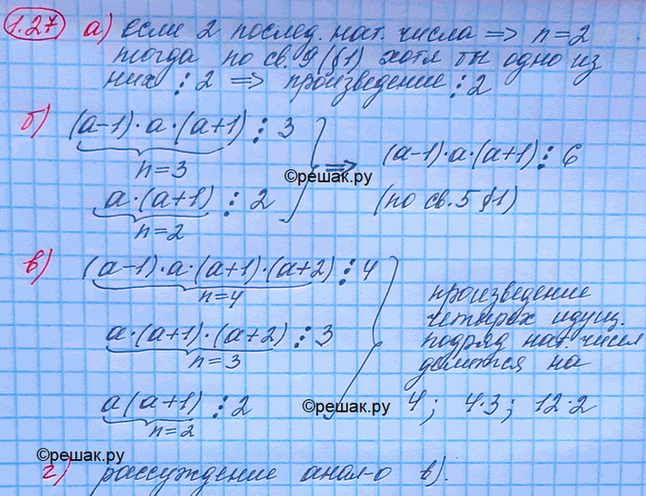 1.27 а) если 2 послед. нат. числа => n=2
тогда по св. 9 (§1) хотя бы одно из
них ⋮ 2 => произведение ⋮ 2
б) (a-1)·a·(a+1) ⋮ 3
n=3
a·(a+1) ⋮ 2
n=2
=> (a-1)·a·(a+1) ⋮ 6
(по св. 5 §1)
©решак.ру
в) (a-1)·a·(a+1)·(a+2) ⋮ 4
n=4
a·(a+1)·(a+2) ⋮ 3
n=3
a(a+1) ⋮ 2
n=2
произведение
четырёх идущ.
подряд нат. чисел
делится на
4; 4·3; 12·2
©решак.ру
©решак.ру
г) рассуждение анал-о в).